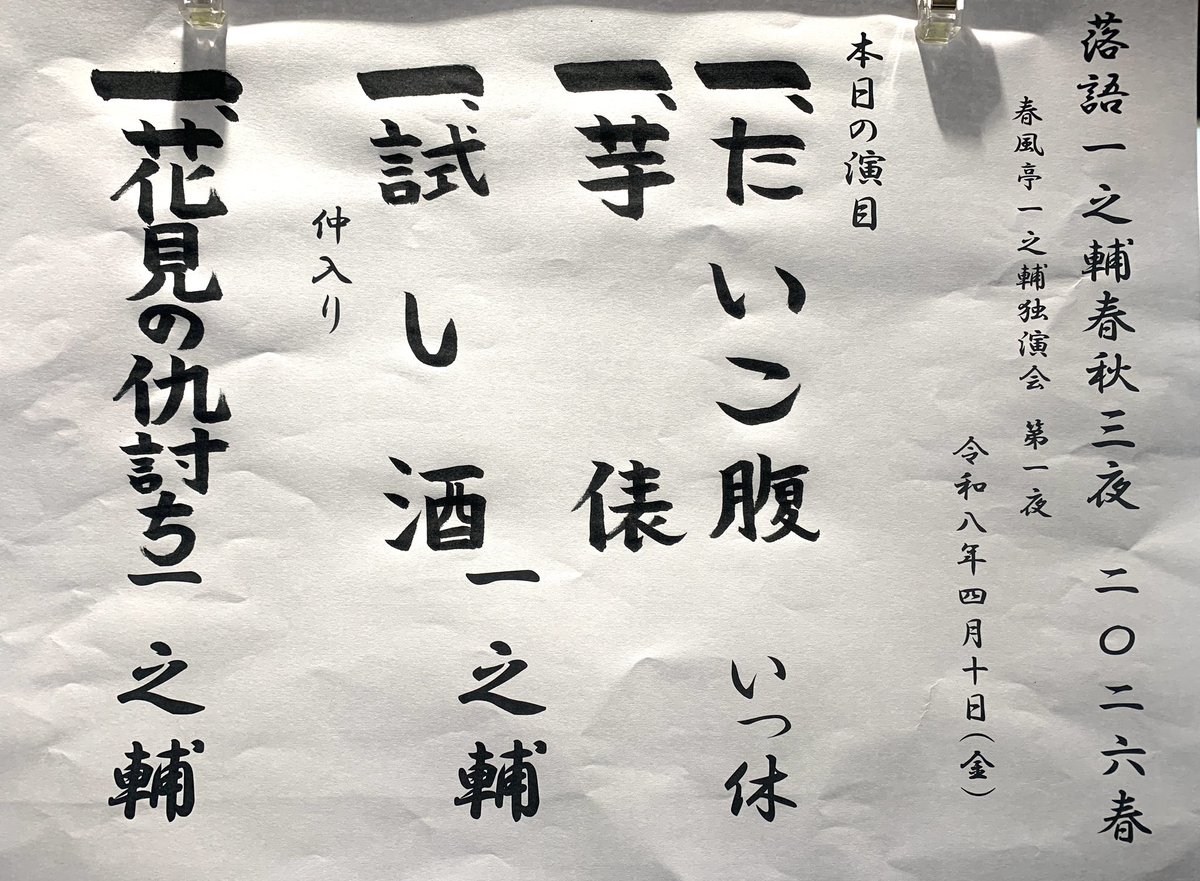 落語 一之輔春秋三夜 二〇二六春
春風亭一之輔独演会 第一夜
令和八年四月十日（金）
本日の演目
一、たいこ腹 いつ休
一、芋俵
一、試し酒 一之輔
仲入り
一、花見の仇討ち 一之輔